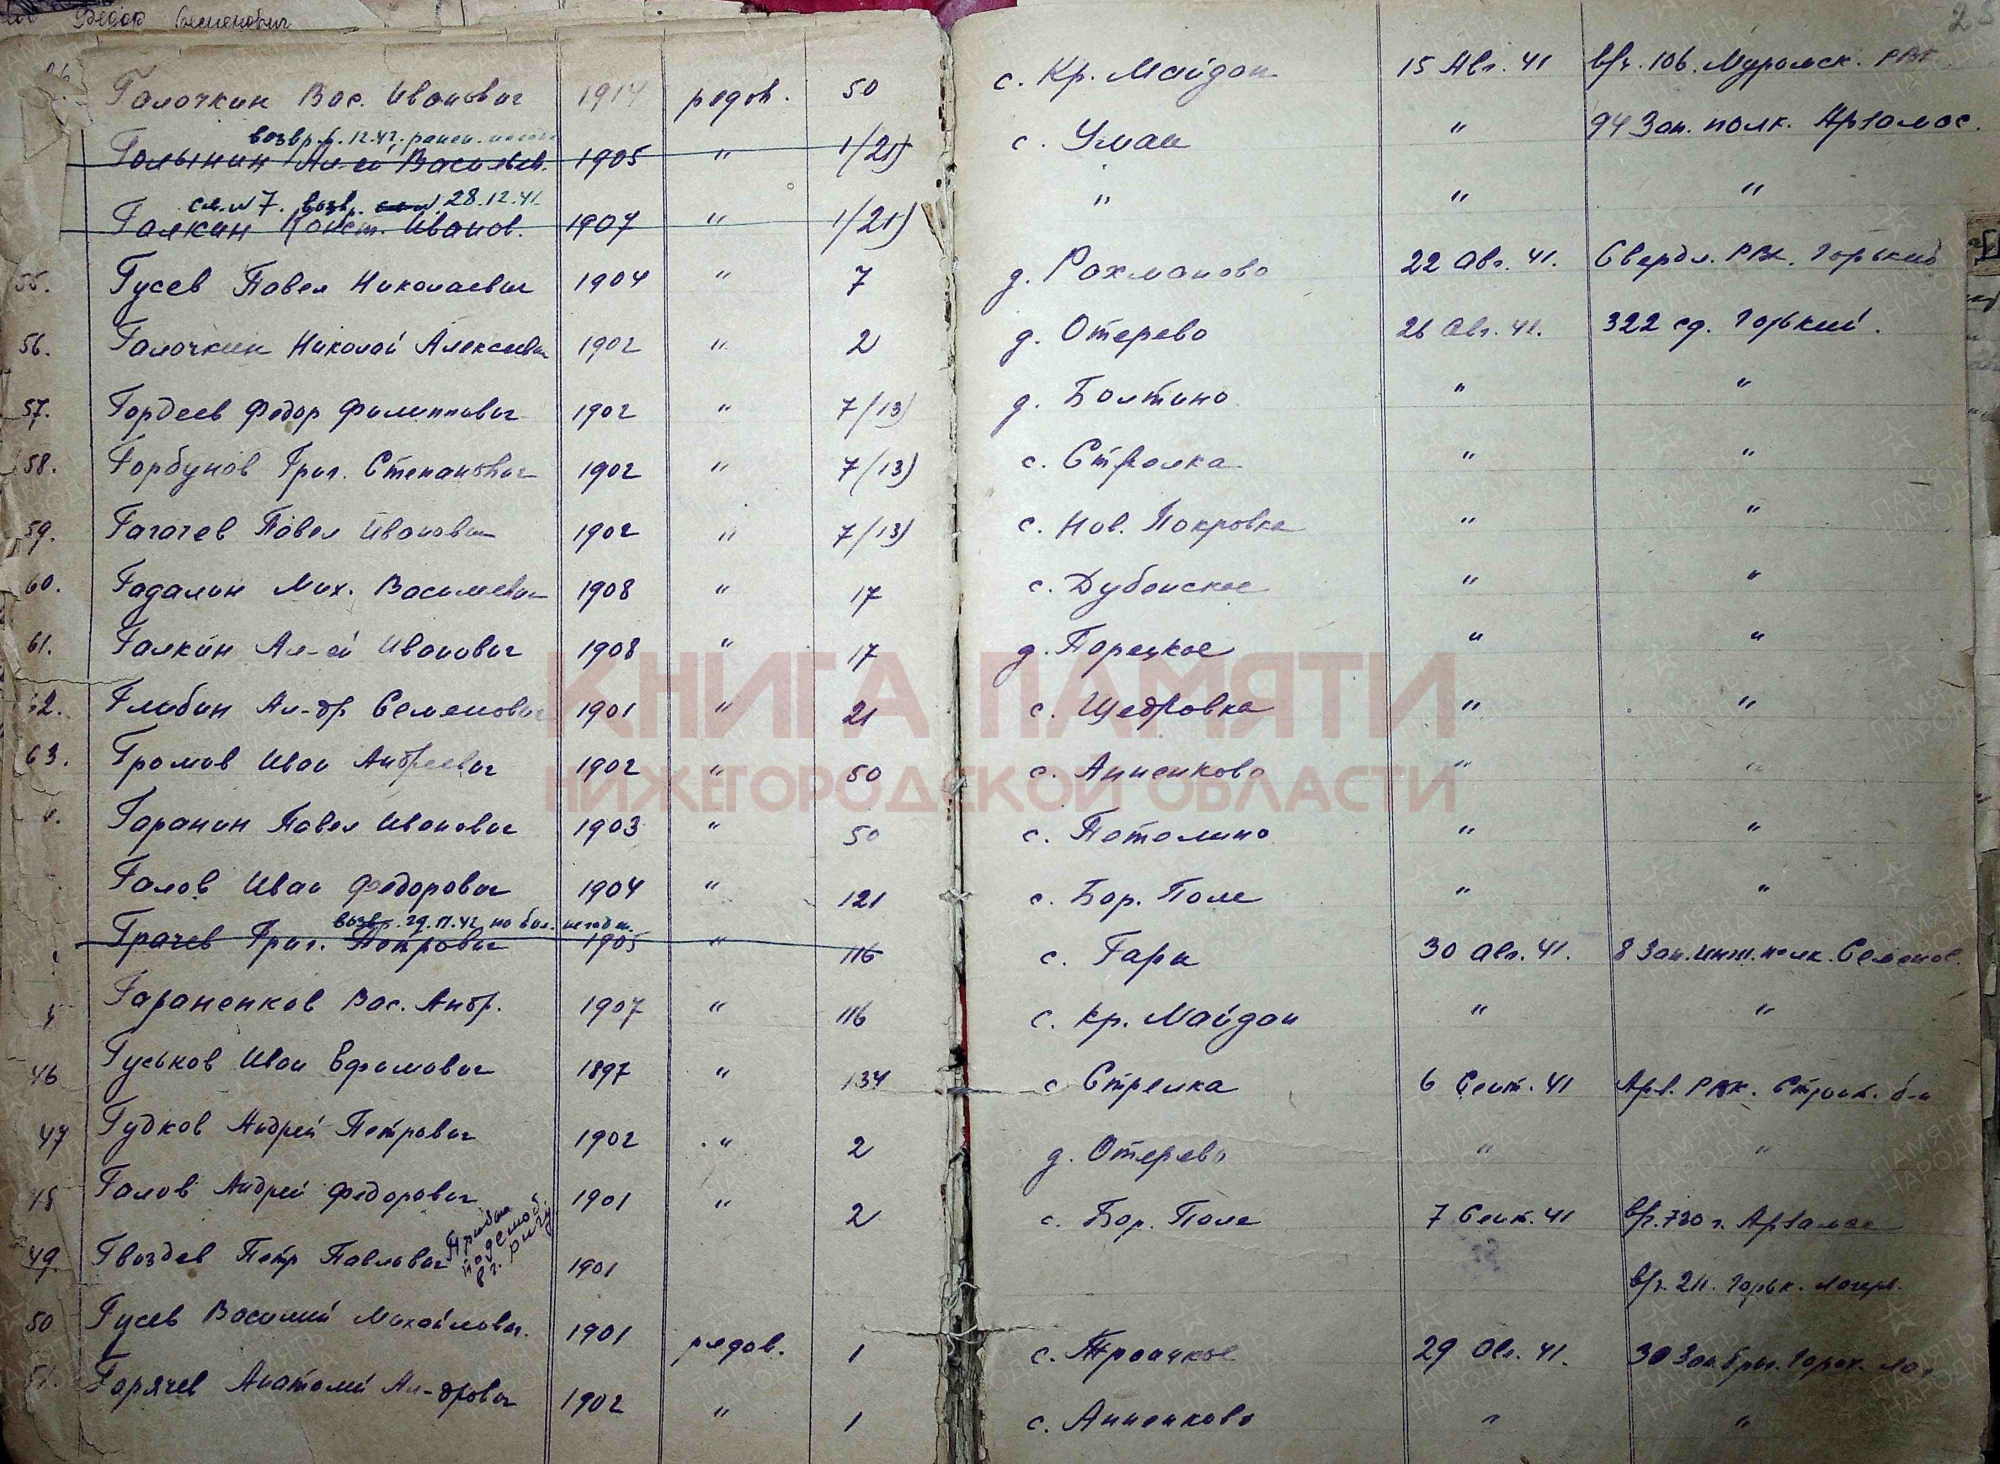 Федор Семенович
25
Галочкин Вас. Иванович 1914 рядов. 50 с. Кр. Майдан 15 Авг. 41 в/ч. 106. Муромск. РВК
возвр. 12.42. ранен.
Голынин Ал-ей Васильев. 1905 " 1/21) с. Уман " 94 Зап. полк. Арзамас.
см. № 7. возвр. 28.12.41
Галкин Конст. Иванов. 1907 " 1/21) " " "
55. Гусев Павел Николаевич 1904 " 7 д. Рахманово 22 Авг. 41. Свердл. РВК. Горький
56. Галочкин Николай Алексеевич 1902 " 2 д. Отерево 26 Авг. 41. 322 сд. Горький.
57. Гордеев Федор Филиппович 1902 " 7/13) д. Болтино " "
58. Горбунов Григ. Степанович 1902 " 7/13) с. Стрелка " "
59. Гагачев Павел Иванович 1902 " 7/13) с. Нов. Покровка " "
60. Гадалин Мих. Васильевич 1908 " 17 с. Дубенское " "
61. Галкин Ал-ей Иванович 1908 " 17 д. Порецкое " "
62. Глибин Ал-др Семенович 1901 " 21 с. Щедровка " "
63. Громов Иван Андреевич 1902 " 50 с. Анненково " "
Гаранин Павел Иванович 1903 " 50 с. Потолино " "
Галов Иван Федорович 1904 " 121 с. Бор. Поле " "
возвр. 29.11.42 по бол. негодн.
Грачев Григ. Петрович 1905 " 116 с. Гари 30 Авг. 41. 8 Зап. инж. полк. Семенов.
Гараненков Вас. Андр. 1907 " 116 с. Кр. Майдан " "
46 Гуськов Иван Ефимович 1897 " 134 с Стрелка 6 Сент. 41 Арз. РВК. Строит. б-н
47 Гудков Андрей Петрович 1902 " 2 д. Отерево " "
48 Галов Андрей Федорович 1901 " 2 с. Бор. Поле 7 Сент. 41 в/ч. 730 г. Арзамас
49. Гвоздев Петр Павлович 1901 в/ч. 211. Горьк. лагер.
50 Гусев Василий Михайлович. 1901 рядов. 1 с. Троицкое 29 Авг. 41. 30 Зап. бриг. Горох. лаг.
51. Горячев Анатолий Ал-дрович 1902 " 1 с. Анненково " "
КНИГА ПАМЯТИ
НИЖЕГОРОДСКОЙ ОБЛАСТИ
ПАМЯТЬ НАРОДА